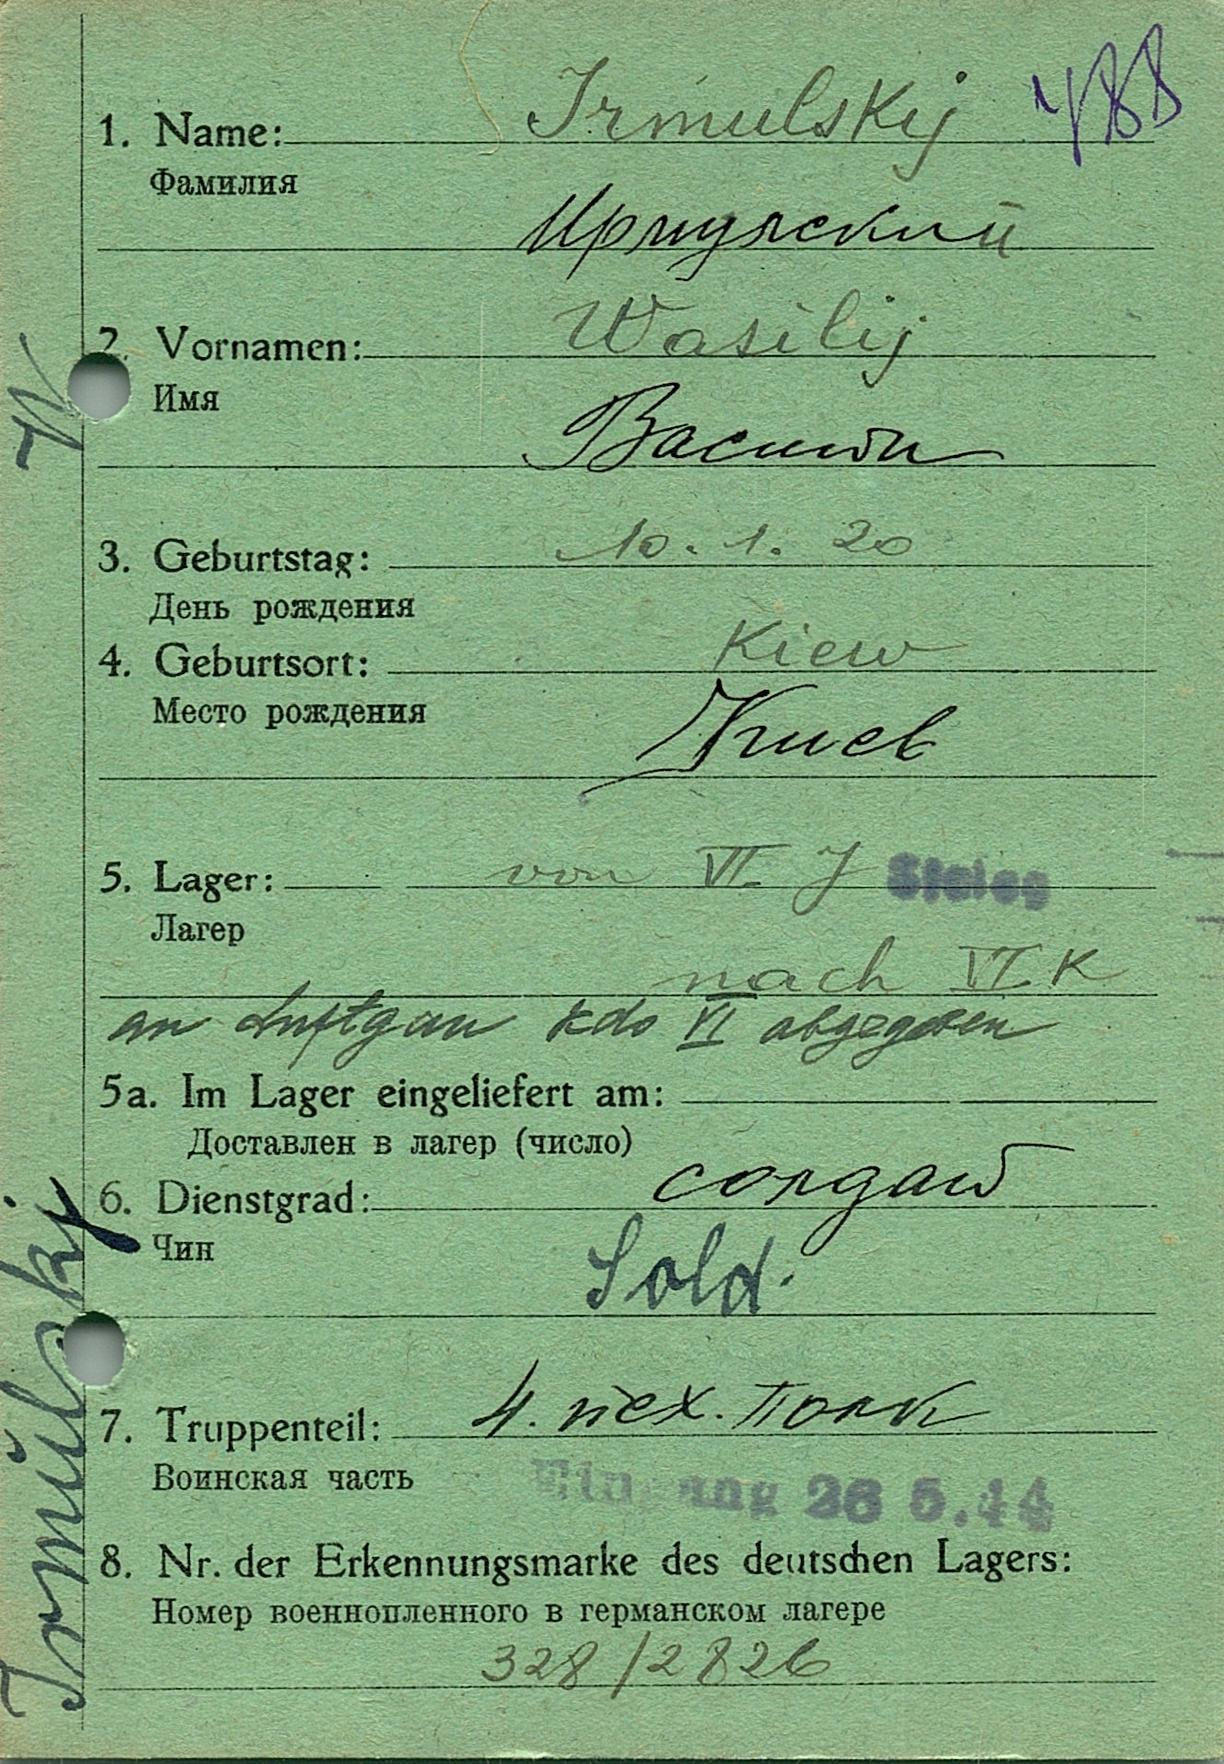 1. Name: Irmulskij
488
Фамилия
Ирмулский
2. Vornamen: Wasilij
Имя
Васили
3. Geburtstag: 10. 1. 20
День рождения
4. Geburtsort: Kiew
Место рождения
Киев
5. Lager: von VI J Stalag
Лагер
nach VI K
an Luftgau Kdo VI abgegeben
5a. Im Lager eingeliefert am:
Доставлен в лагер (число)
6. Dienstgrad: солдат
Чин
Sold.
7. Truppenteil: 4. пех. полк
Воинская часть
Eingang 26 5.44
8. Nr. der Erkennungsmarke des deutschen Lagers:
Номер военнопленного в германском лагере
328/2826
Irmülskij W